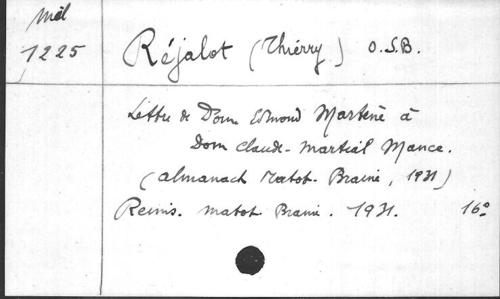 Mél
1225
Réjalot (Thierry) O.S.B.
Lettre de Dom Edmond Martène à
Dom Claude-Martial Mance.
(Almanach Matot-Braine, 1931)
Reims. Matot Braine. 1931. 16°